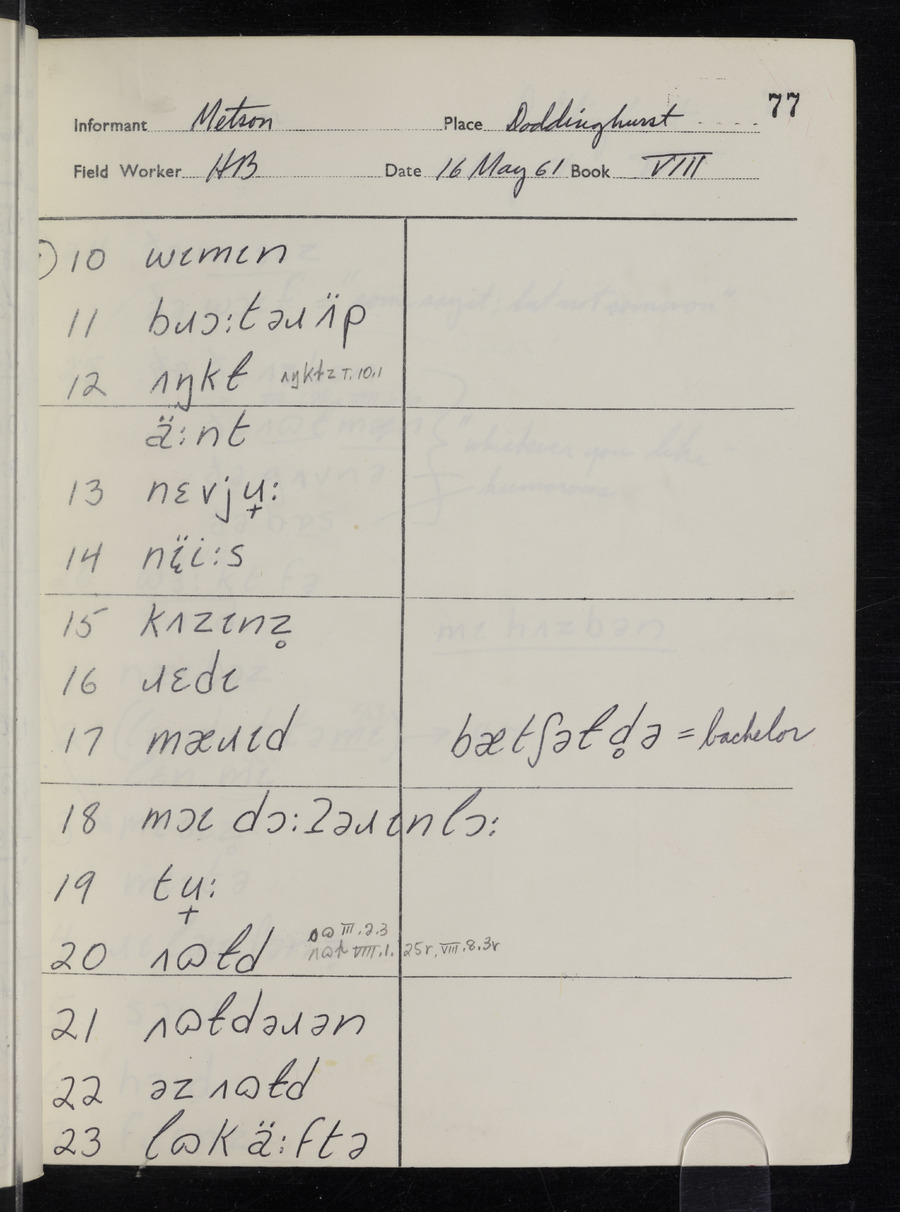 77
Informant Metson Place Doddinghurst
Field Worker HB Date 16 May 61 Book VIII
10 wɪmɪn
11 bɹɔ:təɹ ʌ̈p
12 ʌŋkɫ ʌŋkɫz T.10.1
ä:nt
13 nɛvjʉ̟:
14 nï̞i:s
15 kʌzɪnz̥
16 ɹɛdɪ
17 mæɹɪd bætʃəɫd̥ə = bachelor
18 mɔɪ dɔ:ʔəɹɪnlɔ:
19 tʉ̟:
20 ʌɷɫd
ɷ III.2.3
ʌɷɫ VIII.1.25r, VIII.8.3r
21 ʌɷɫdəɹən
22 əz ʌɷɫd
23 lɷk ä:ftə